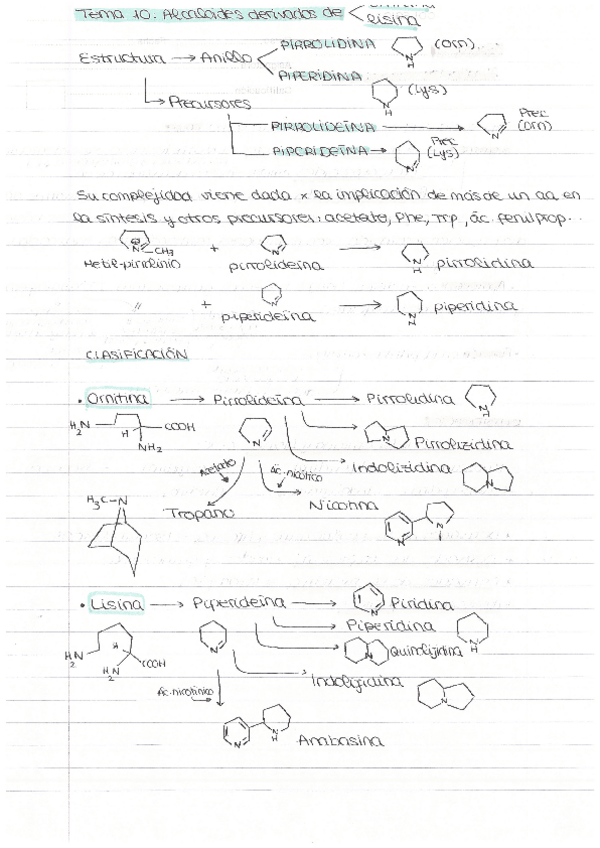 Tema 10. Alcaloides derivados de < ornitina
lisina
Estructura → Anillo < PIRROLIDINA (Orn)
N
H
PIPERIDINA (Lys)
N
H
↳ Precursores
PIRROLIDEÍNA → N Prec (Orn)
PIPERIDEÍNA → N Prec (Lys)
Su complejidad viene dada x la implicación de más de un aa en
la síntesis y otros precursores: acetato, Phe, Trp, ác. fenilprop...
N-CH3
Metil-pirrolinio + pirrolideína → pirrolidina
N
H
" + piperideína → piperidina
N
H
CLASIFICACIÓN
• Ornitina → Pirrolideína → Pirrolidina
N
H
H2N H COOH
NH2
N
Pirrolizidina
N
Indolizidina
N
Acetato
Ác. nicótico
Tropano
Nicotina
H3C-N
N
N
• Lisina → Piperideína → Piridina
N
Piperidina
N
H
Quinolizidina
N
Indolizidina
N
H2N H COOH
H2N
N
Ác. nicotínico
Anabasina
N
N
H